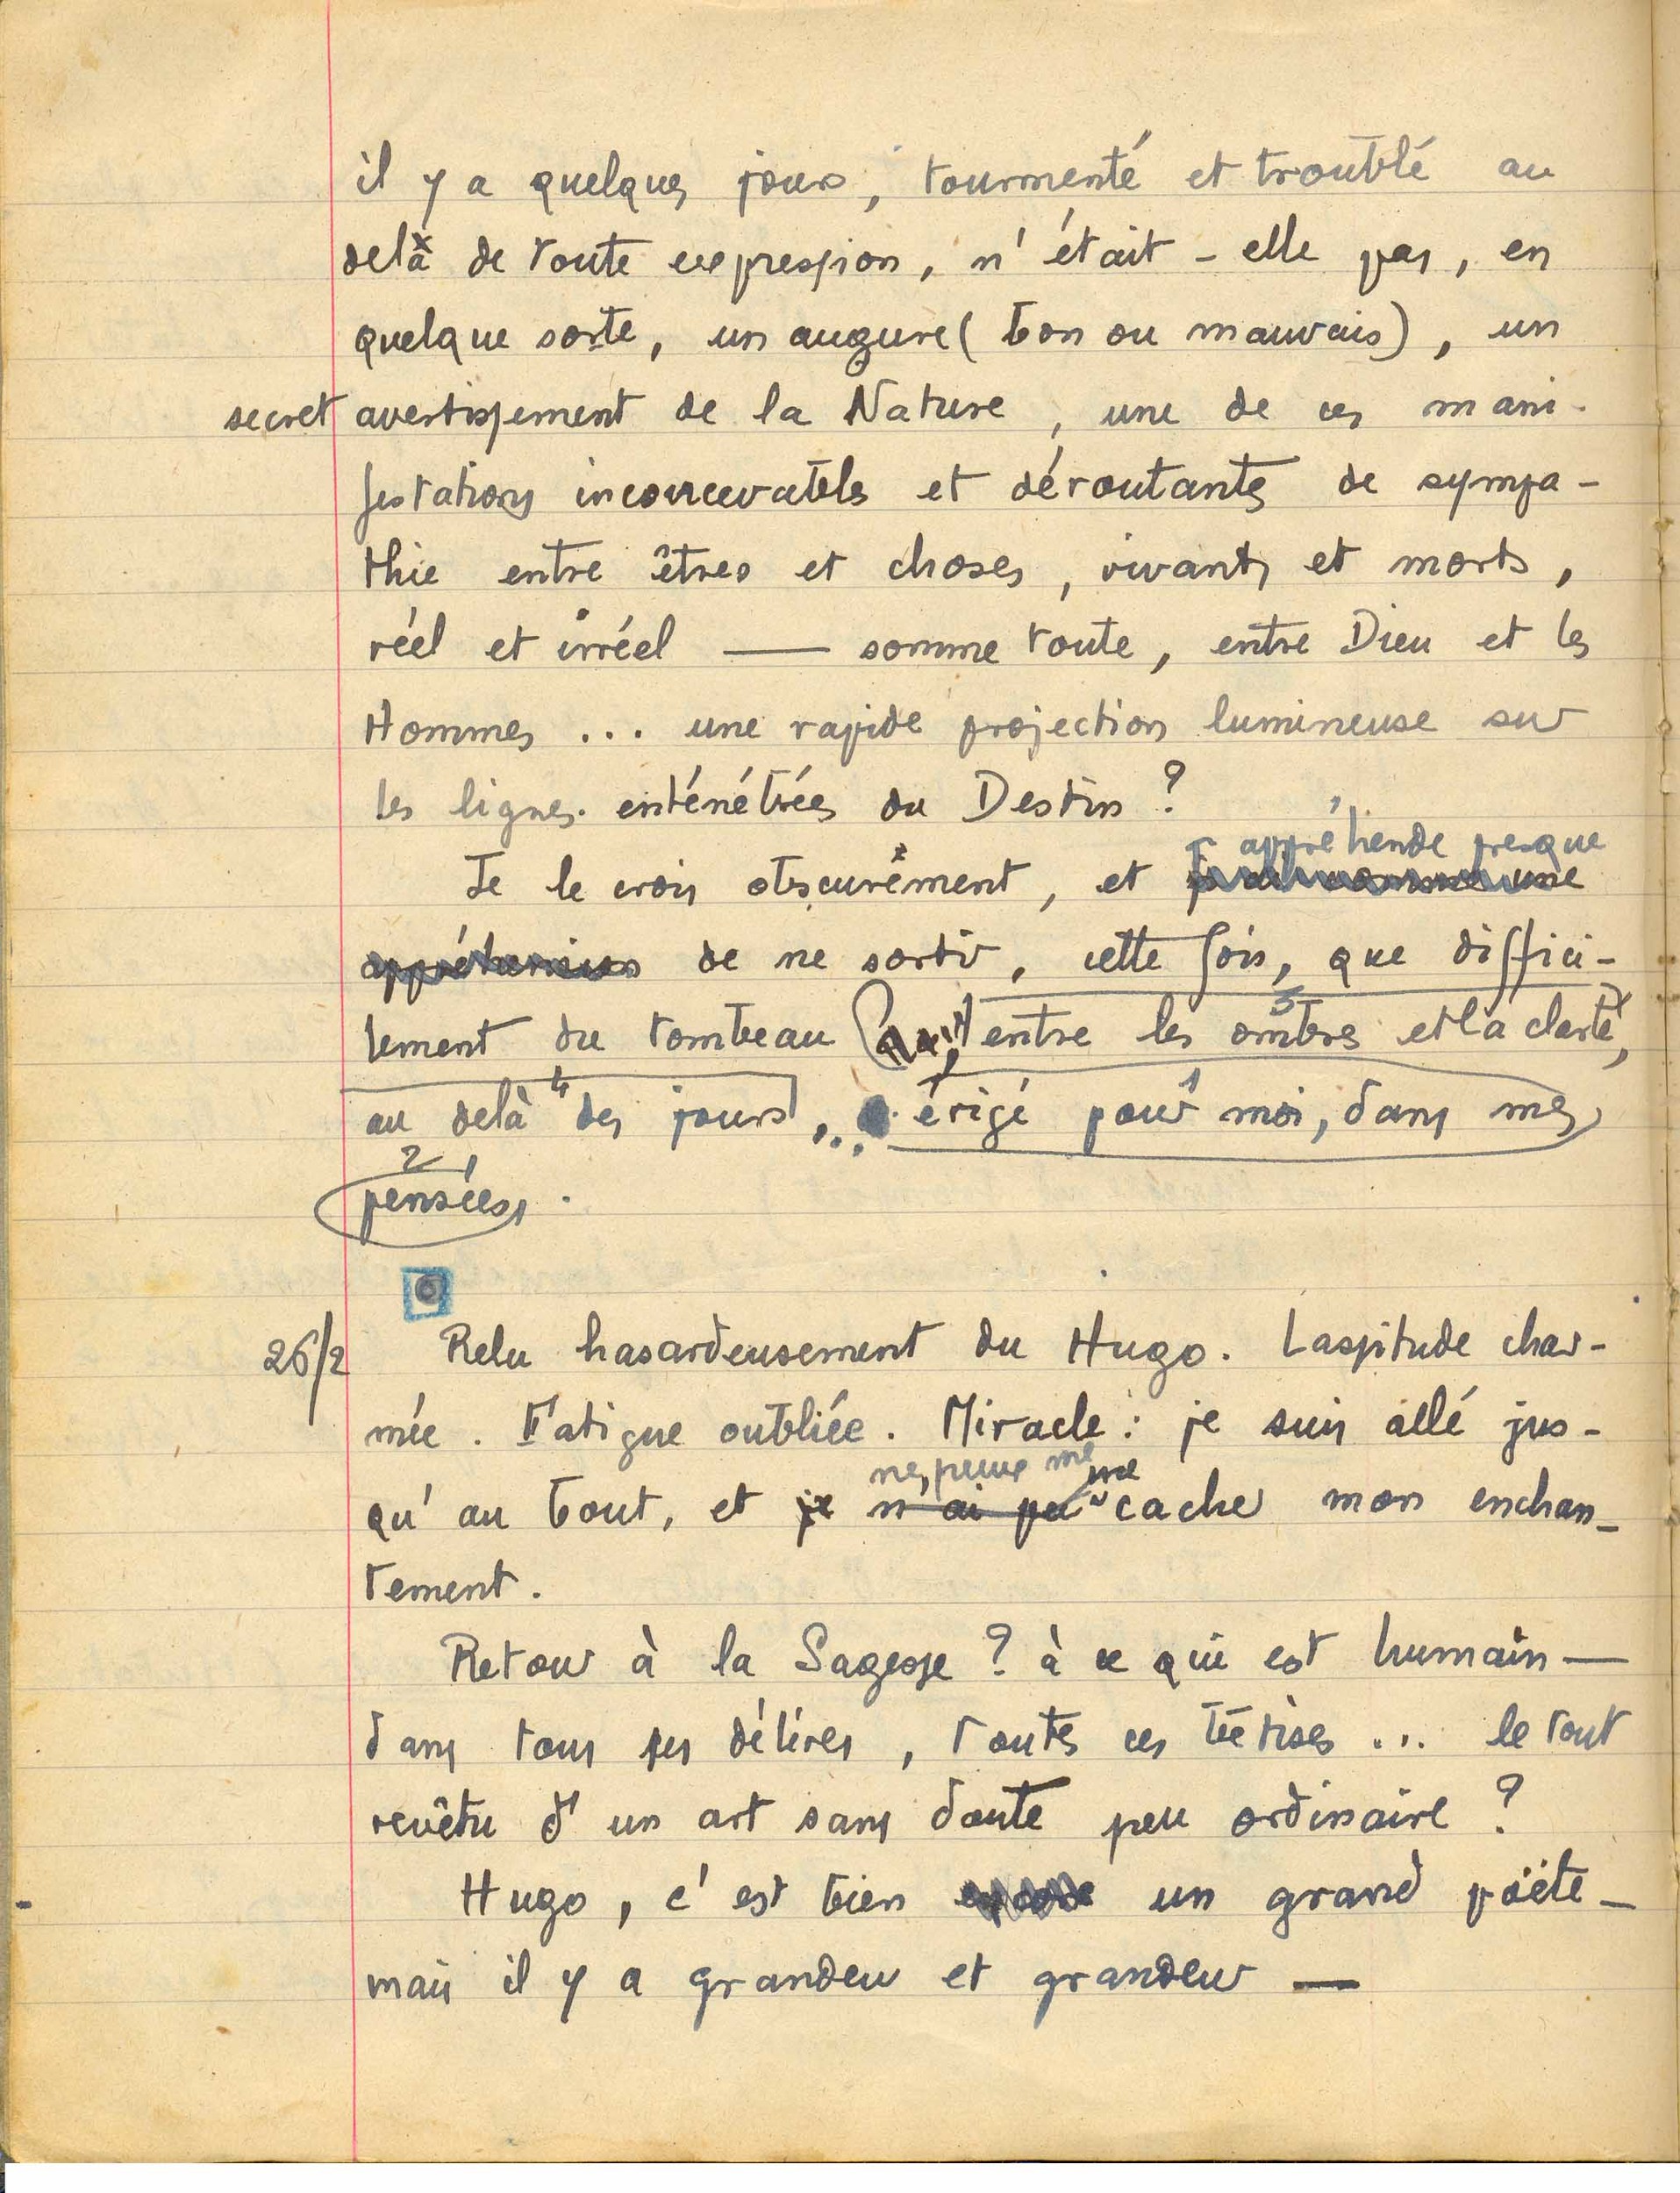 il y a quelques jours, tourmenté et troublé au
delà de toute expression, n'était-elle pas, en
quelque sorte, un augure (bon ou mauvais), un
secret avertissement de la Nature, une de ces mani-
festations inconcevables et déroutantes de sympa-
thie entre êtres et choses, vivants et morts,
réel et irréel — somme toute, entre Dieu et les
Hommes ... une rapide projection lumineuse sur
les lignes enténébrées du Destin ?
j'appréhende presque
Je le crois obscurément, et j'ai comme une
appréhension de ne sortir, cette fois, que diffici-
3
lement du tombeau qui, entre les ombres et la clarté,
4 1
au delà des jours, ... érigé pour moi, dans mes
2
pensées.
26/2 Relu hasardeusement du Hugo. Lassitude char-
mée. Fatigue oubliée. Miracle : je suis allé jus-
ne peux me me
qu'au bout, et je n'ai pu cacher mon enchan-
tement.
Retour à la Sagesse ? à ce qui est humain —
dans tous ses délires, toutes ces bêtises ... le tout
revêtu d'un art sans doute peu ordinaire ?
Hugo, c'est bien encore un grand poëte —
mais il y a grandeur et grandeur —